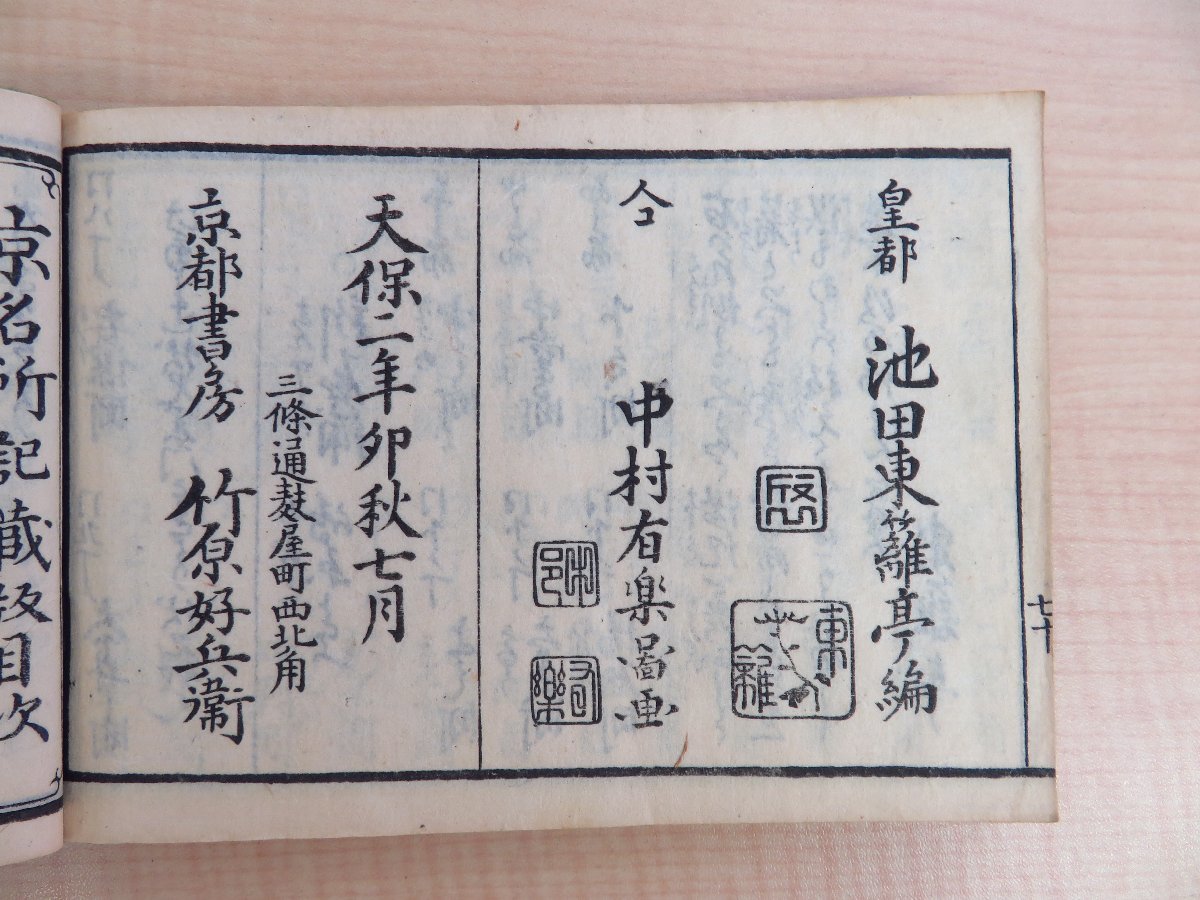 皇都 池田東籬亭編
東籬
仝 中村有楽圖画
有樂
天保二年卯秋七月
三條通麸屋町西北角
京都書房 竹原好兵衛
七十
京名所記藏板目次